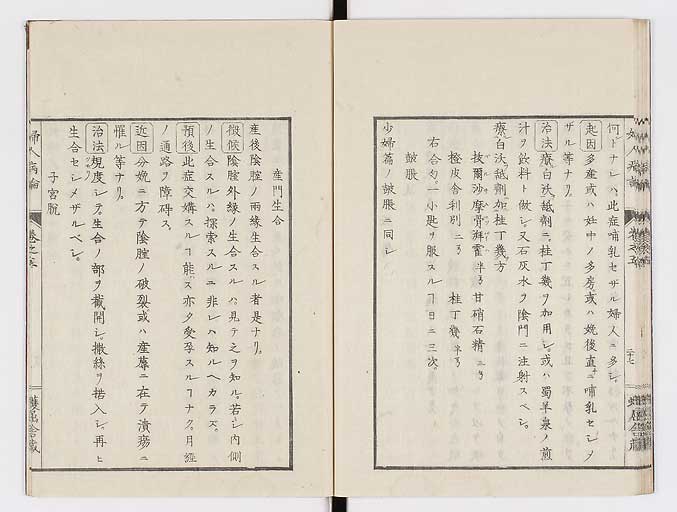 何トナレハ此症哺乳セザル婦人ニ多シ
起因 多産或ハ妊中ノ多房或ハ娩後直ニ哺乳セシメ
ザル等ナリ
治法 療白沃越剤ニ桂丁幾ヲ加用シ或ハ蜀羊泉ノ煎
汁ヲ飲料ト做シ又石灰水ヲ陰門ニ注射スベシ
療白沃越剤加桂丁幾方
抜爾沙摩骨湃
橙皮舎利別 桂丁幾
右合匀一小匙ヲ服スルヿ日ニ三次
皷脹
少婦篇ノ皷脹ニ同シ
産門生合
産後陰腟ノ両縁生合スル者是ナリ
徴候 陰腟外縁ノ生合スルハ見テ之ヲ知ル若シ内側
ノ生合スルハ探索スルニ非レハ知ルヘカラス
預後 此症交媾スルヿ能ス亦タ受孕スルヿナク月経
ノ通路ヲ障碍ス
近因 分娩ニ方テ陰腟ノ破裂或ハ産蓐ニ在テ潰瘍ニ
罹ル等ナリ
治法 規度シテ生合ノ部ヲ截開シ撒糸ヲ㨮入シ再ヒ
生合セシメザルベシ
子宮脱
婦人病論 巻之五